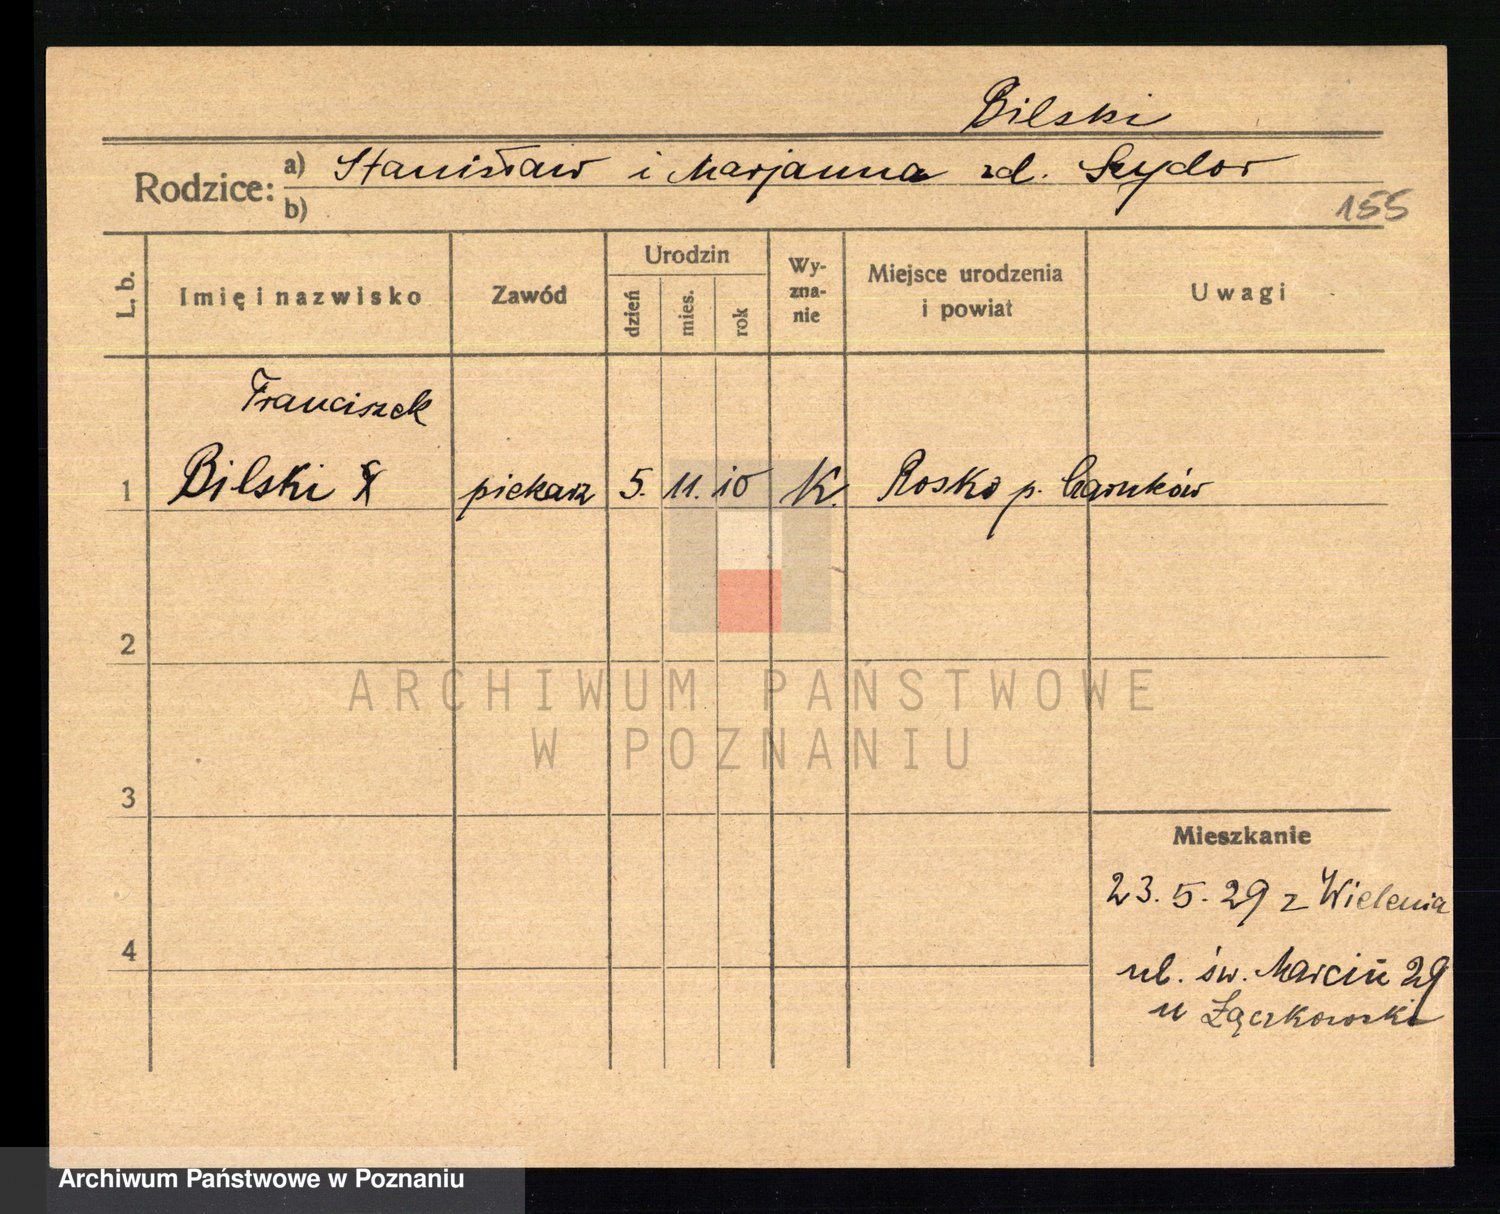 Bilski
Rodzice: a) Stanisław i Marjanna zd. Szydor
b)
155
L. b.
Imię i nazwisko
Zawód
Urodzin
dzień
mies.
rok
Wy-
zna-
nie
Miejsce urodzenia
i powiat
Uwagi
Franciszek
1 Bilski piekarz 5. 11. 10 K. Rosko p. Czarnków
2
3
4
Mieszkanie
23. 5. 29 z Wielenia
ul. św. Marcin 29
u Łączkowski
ARCHIWUM PAŃSTWOWE
W POZNANIU
Archiwum Państwowe w Poznaniu